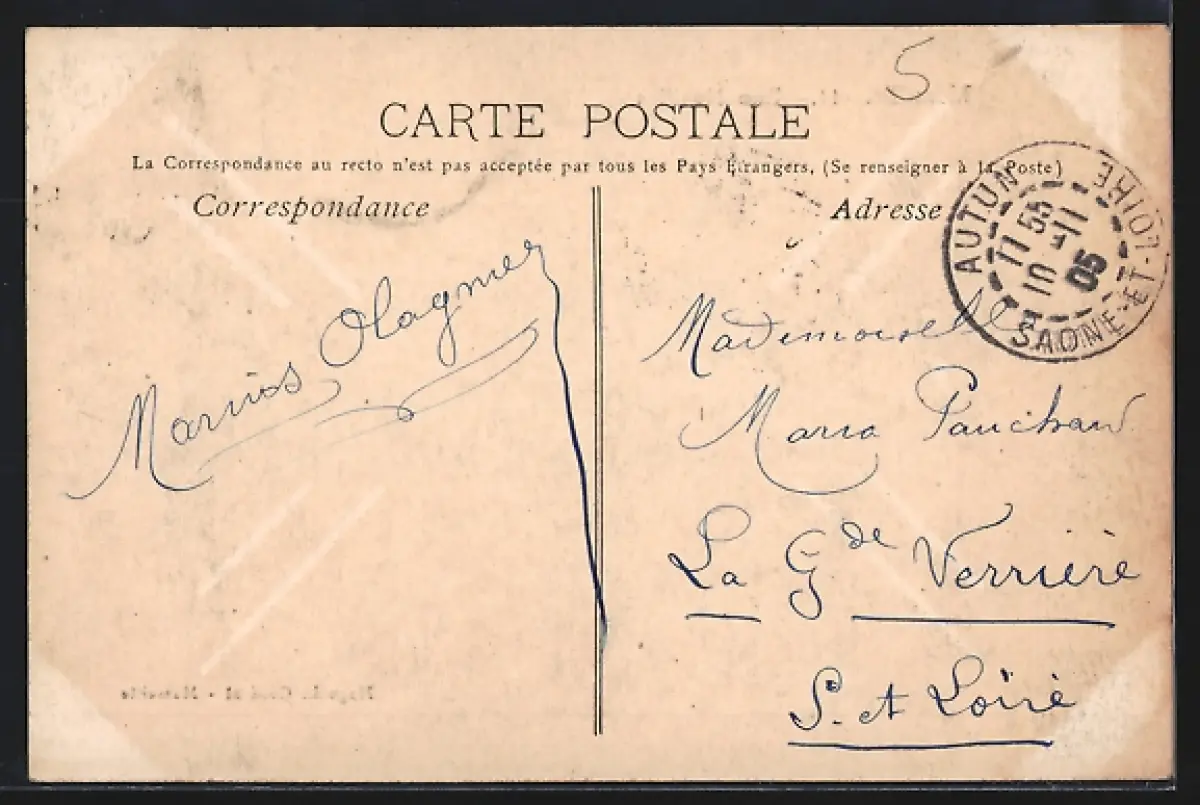 5
CARTE POSTALE
La Correspondance au recto n'est pas acceptée par tous les Pays Étrangers, (Se renseigner à la Poste)
Correspondance
Adresse
AUTUN
SAONE-ET-LOIRE
11 55
10 -11
05
Marius Olagnier
Mademoiselle
Maria Pauchard
La Gde Verrière
S. et Loire